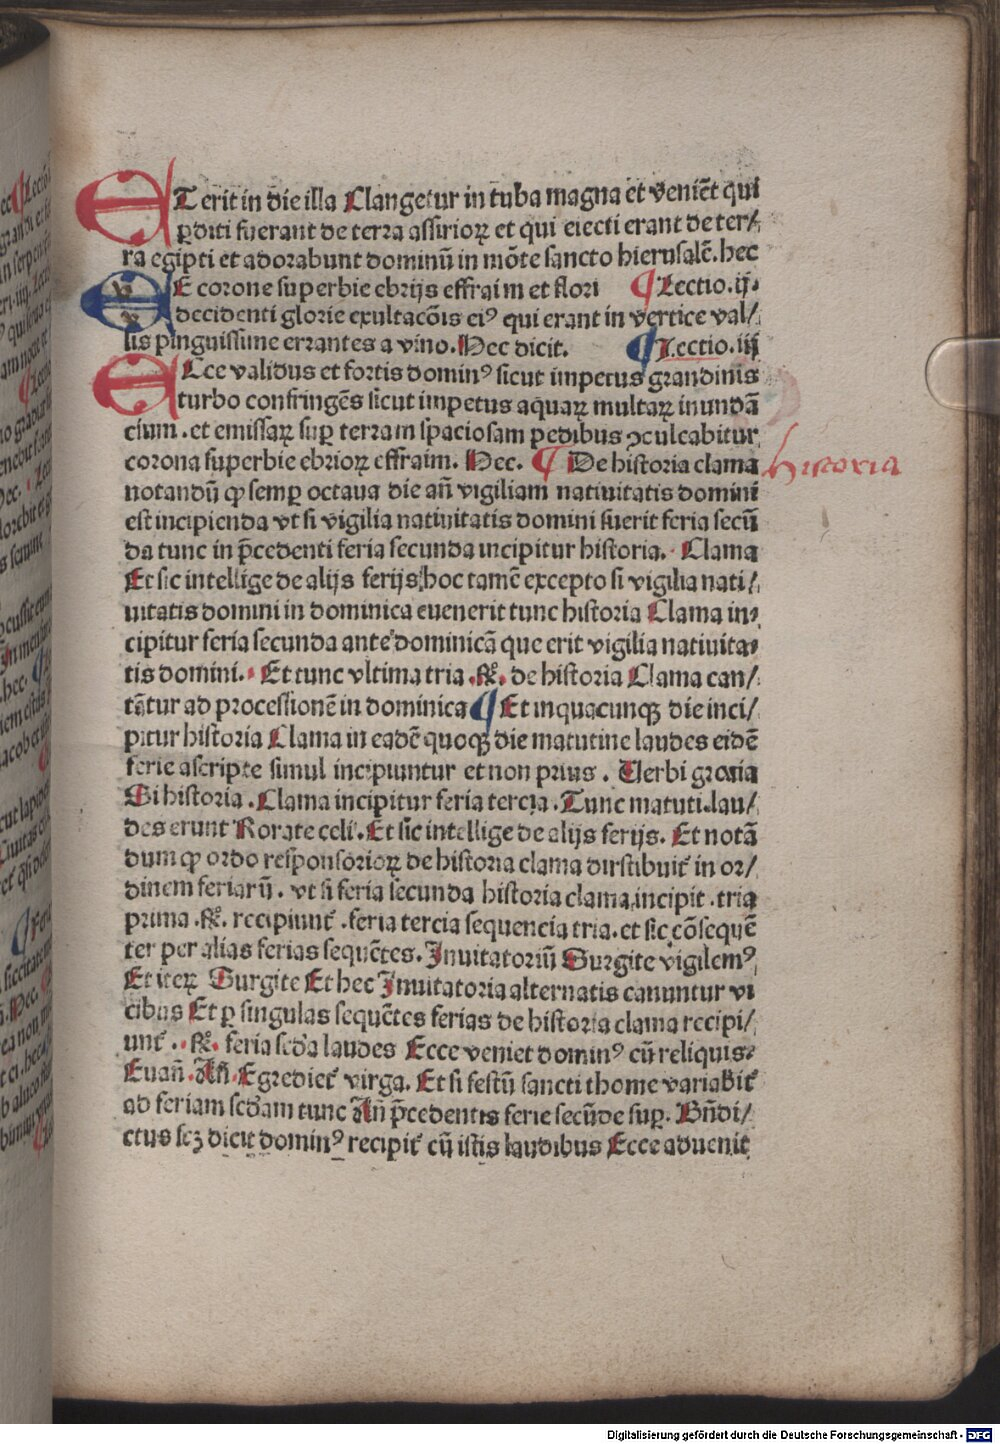 ET erit in die illa Clangetur in tuba magna et veniēt qui
ꝑditi fuerant de terra assirioꝝ et qui eiecti erant de ter/
ra egipti et adorabunt dominū in mōte sancto hierusalē. hec
E corone superbie ebrijs effraim et flori ¶ Lectio .ij.
decidenti glorie exultacōis eiꝰ qui erant in vertice val/
lis pinguissime errantes a vino. Hec dicit. ¶ Lectio .iij
ECce validus et fortis dominꝰ sicut impetus grandinis
turbo confringēs sicut impetus aquaꝝ multaꝝ inundā
cium . et emissaꝝ suꝑ terram spaciosam pedibus ꝯculcabitur
corona superbie ebrioꝝ effraim. Hec. ¶ De historia clama
historia
notandū ꝙ semꝑ octaua die an̄ vigiliam natiuitatis domini
est incipienda vt si vigilia natiuitatis domini fuerit feria secū
da tunc in p̄cedenti feria secunda incipitur historia. Clama
Et sic intellige de alijs ferijs hoc tamē excepto si vigilia nati/
uitatis domini in dominica euenerit tunc historia Clama in/
cipitur feria secunda ante dominicā que erit vigilia natiuita/
tis domini. Et tunc vltima tria .R̸. de historia Clama can/
tātur ad processionē in dominica ¶ Et inquacunqꝫ die inci/
pitur historia Clama in eadē quoqꝫ die matutine laudes eidē
ferie ascripte simul incipiuntur et non prius . Verbi gracia
Si historia . Clama incipitur feria tercia . Tunc matuti. lau/
des erunt Rorate celi . Et sic intellige de alijs ferijs. Et notā
dum ꝙ ordo responsorioꝝ de historia clama distibuit᷑ in or/
dinem feriarū . vt si feria secunda historia clama incipit . tria
prima .R̸. recipiunt᷑ . feria tercia sequencia tria. et sic cōsequē
ter per alias ferias sequētes. Inuitatoriū Surgite vigilemꝰ
Et iteꝝ Surgite Et hec Inuitatoria alternatis canuntur vi
cibus Et ꝑ singulas sequētes ferias de historia clama recipi/
unt᷑ . R̸. feria scd̄a laudes Ecce veniet dominꝰ cū reliquis.
Euan̄. An̄. Egrediet᷑ virga. Et si festū sancti thome variabit᷑
ad feriam scd̄am tunc An̄ p̄cedentis ferie secūde suꝑ. Bn̄di/
ctus scꝫ dicit dominꝰ recipit᷑ cū istis laudibus Ecce aduenit
Digitalisierung gefördert durch die Deutsche Forschungsgemeinschaft - DFG